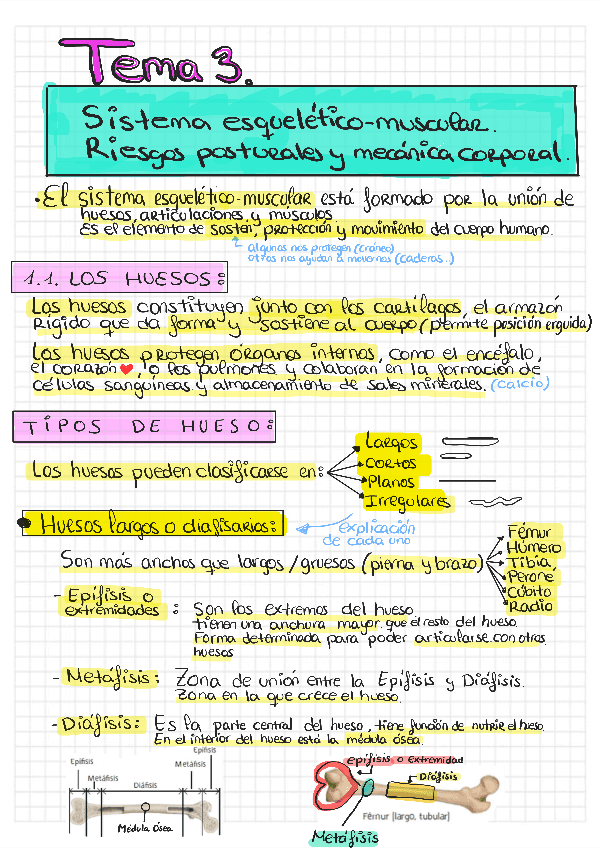 Tema 3.
Sistema esquelético-muscular.
Riesgos posturales y mecánica corporal.
• El sistema esquelético-muscular está formado por la unión de
huesos, articulaciones, y músculos
Es el elemento de sostén, protección y movimiento del cuerpo humano.
algunas nos protegen (cráneo)
otras nos ayudan a movernos (caderas..)
1.1. LOS HUESOS:
Los huesos constituyen junto con los cartílagos, el armazón
rígido que da forma y sostiene al cuerpo (permite posición erguida)
Los huesos protegen órganos internos, como el encéfalo,
el corazón ❤, o los pulmones y colaboran en la formación de
células sanguíneas y almacenamiento de sales minerales. (calcio)
TIPOS DE HUESO:
Los huesos pueden clasificarse en:
Largos
Cortos
Planos
Irregulares
• Huesos largos o diafisarios:
explicación
de cada uno
Son más anchos que largos / gruesos (pierna y brazo)
Fémur
Húmero
Tibia,
Peroné
Cúbito
Radio
- Epífisis o
extremidades : Son los extremos del hueso
Tienen una anchura mayor que el resto del hueso
Forma determinada para poder articularse con otros
huesos
- Metáfisis: Zona de unión entre la Epífisis y Diáfisis.
Zona en la que crece el hueso.
- Diáfisis: Es la parte central del hueso, tiene función de nutrir el hueso.
En el interior del hueso está la médula ósea.
Epífisis
Metáfisis
Diáfisis
Metáfisis
Epífisis
Médula Ósea
epífisis o extremidad
Diáfisis
Fémur [largo, tubular]
Metáfisis